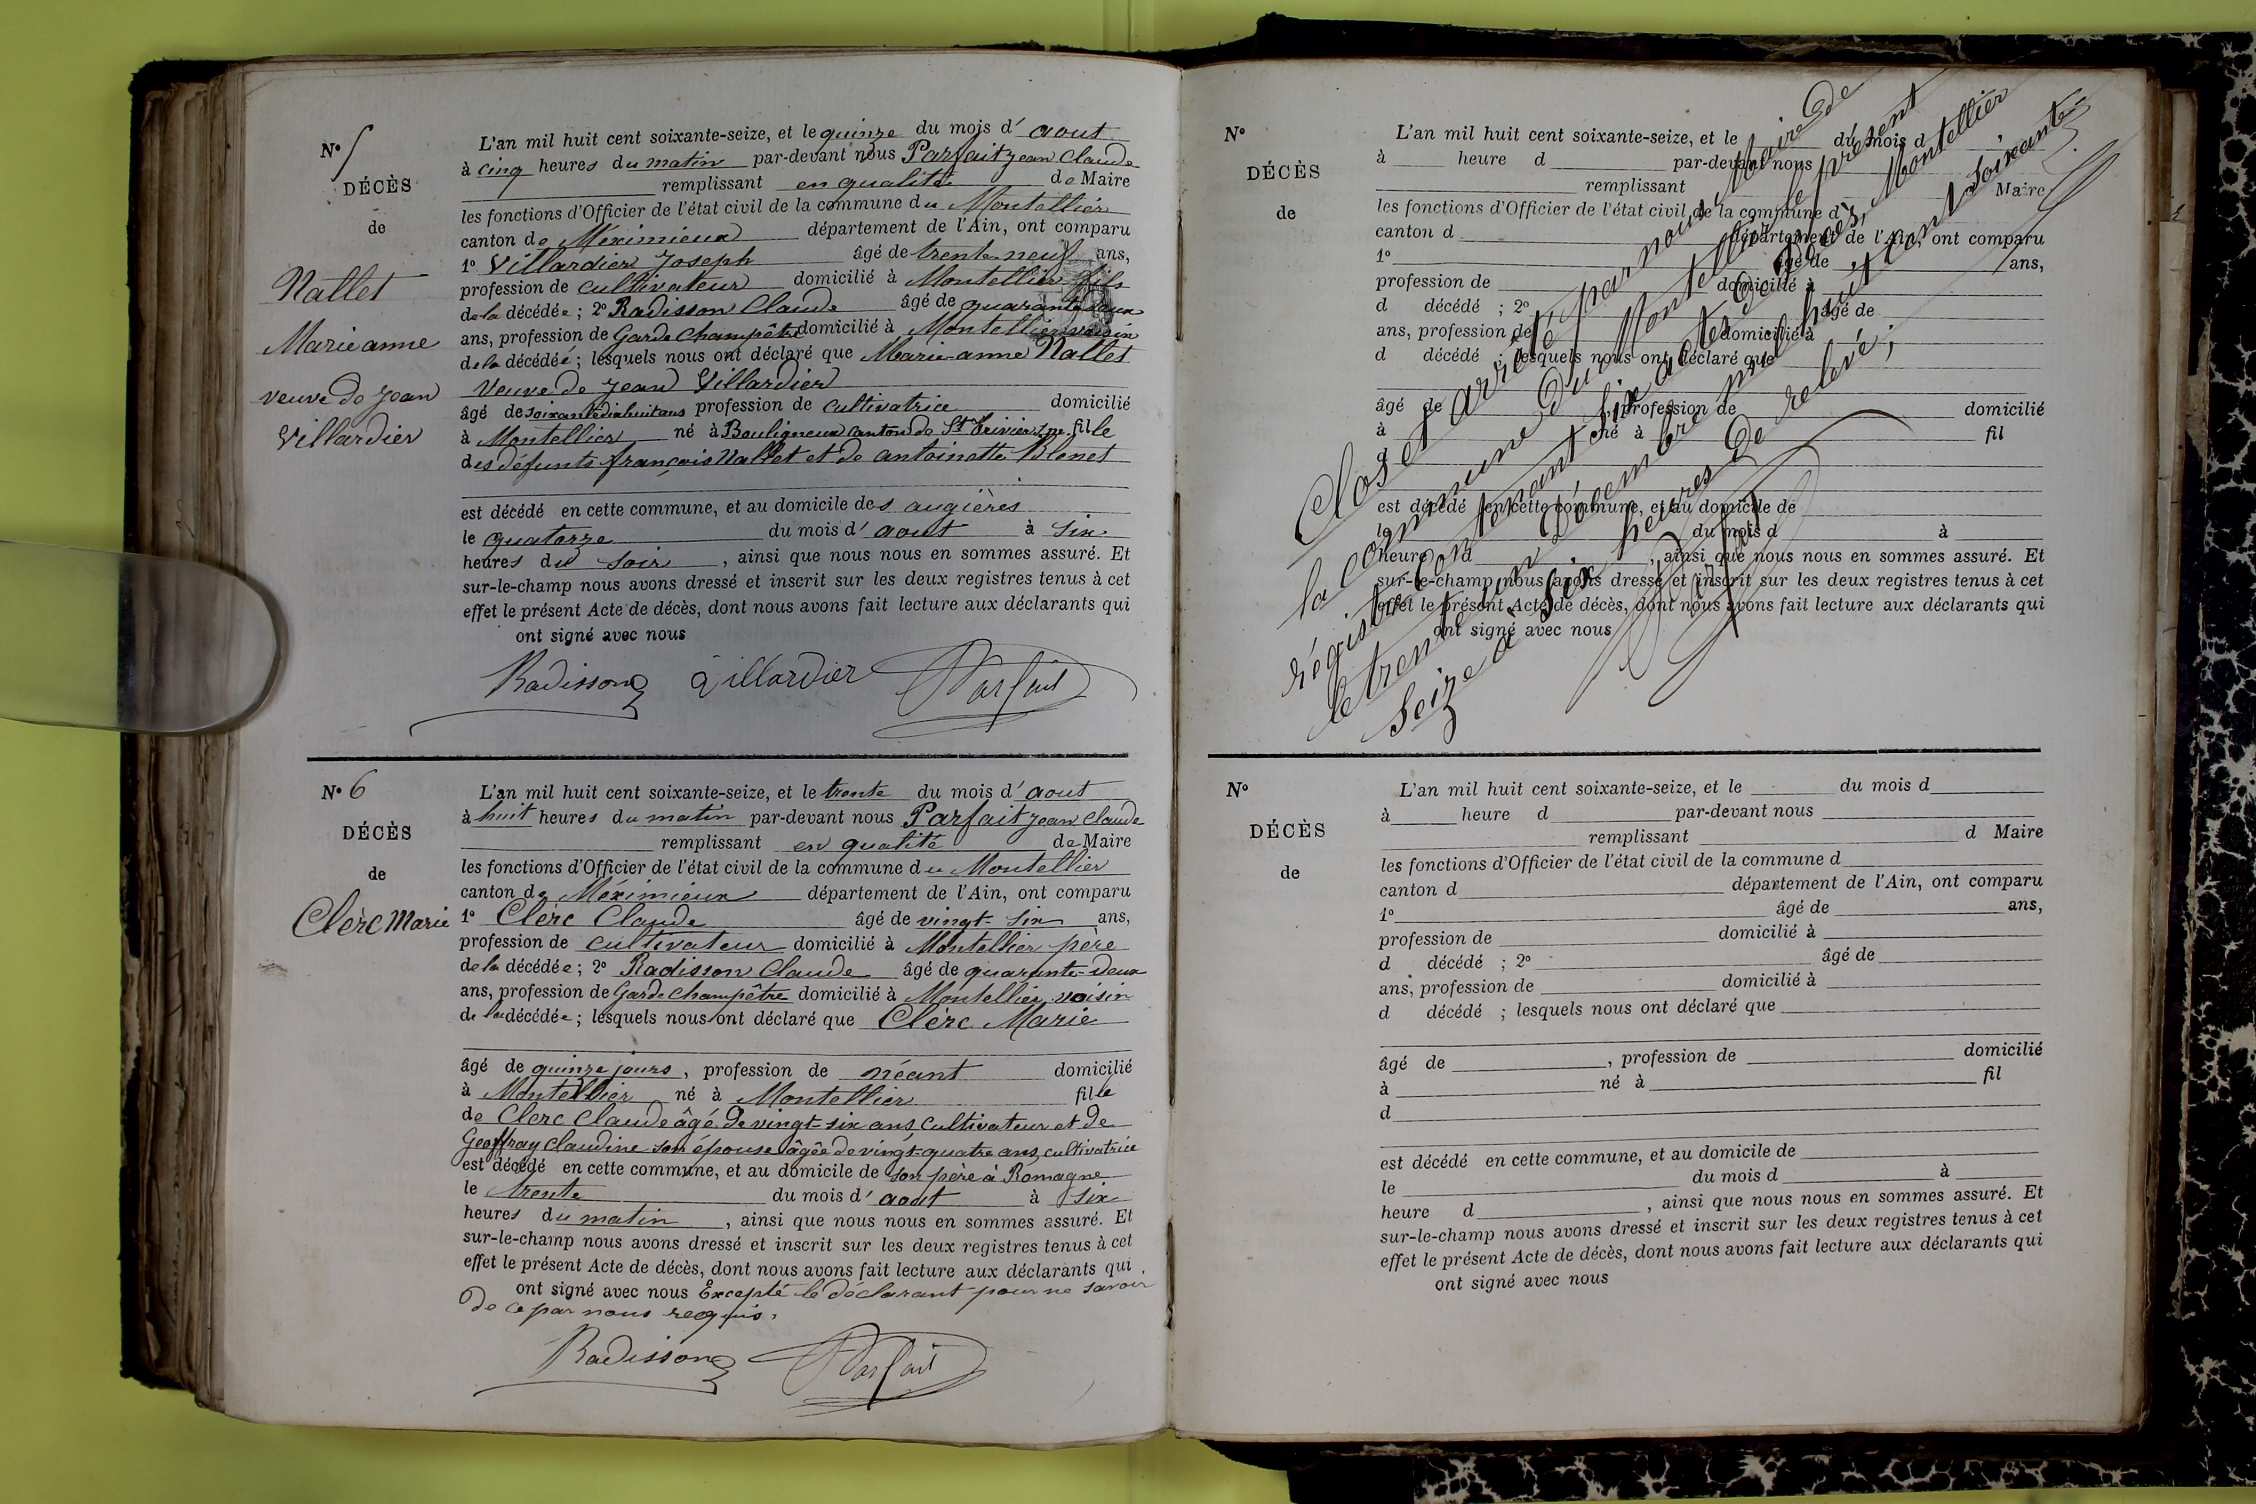 N° 5
DÉCÈS
de
Nallet
Marie anne
veuve de Jean
Villardier
L'an mil huit cent soixante-seize, et le quinze du mois d'aout
à cinq heures du matin par-devant nous Parfait jean Claude
remplissant en qualité de Maire
les fonctions d'Officier de l'état civil de la commune du Montellier
canton de Méximieux département de l'Ain, ont comparu
1° Villardier Joseph âgé de trente neuf ans,
profession de cultivateur domicilié à Montellier fils
de la décédée; 2° Radisson Claude âgé de quarante deux
ans, profession de Garde Champêtre domicilié à Montellier voisin
de la décédée; lesquels nous ont déclaré que Marie-anne Nallet
Veuve de Jean Villardier
âgé de soixante dix huit ans profession de cultivatrice domicilié
à Montellier né à Bouligneux canton de St Trivier s/m fille
des défunts françois Nallet et de antoinette Blenet
est décédé en cette commune, et au domicile des augières
le quatorze du mois d'aout à six
heures du soir, ainsi que nous nous en sommes assuré. Et
sur-le-champ nous avons dressé et inscrit sur les deux registres tenus à cet
effet le présent Acte de décès, dont nous avons fait lecture aux déclarants qui
ont signé avec nous
Radisson Villardier Parfait
N° 6
DÉCÈS
de
Clèrc Marie
L'an mil huit cent soixante-seize, et le trente du mois d'aout
à huit heures du matin par-devant nous Parfait jean Claude
remplissant en qualité de Maire
les fonctions d'Officier de l'état civil de la commune du Montellier
canton de Méximieux département de l'Ain, ont comparu
1° Clèrc Claude âgé de vingt-six ans,
profession de cultivateur domicilié à Montellier père
de la décédée; 2° Radisson Claude âgé de quarante-deux
ans, profession de Garde Champêtre domicilié à Montellier voisin
de la décédée; lesquels nous ont déclaré que Clèrc Marie
âgé de quinze jours, profession de néant domicilié
à Montellier né à Montellier fille
de Clerc Claude âgé de vingt-six ans cultivateur et de
Geoffray Claudine son épouse âgée de vingt-quatre ans, cultivatrice
est décédé en cette commune, et au domicile de son père à Romagne
le trente du mois d'aout à six
heures du matin, ainsi que nous nous en sommes assuré. Et
sur-le-champ nous avons dressé et inscrit sur les deux registres tenus à cet
effet le présent Acte de décès, dont nous avons fait lecture aux déclarants qui
ont signé avec nous Excepté le déclarant pour ne savoir
de ce par nous requis.
Radisson Parfait
N°
DÉCÈS
de
L'an mil huit cent soixante-seize, et le du mois d
à heure d par-devant nous
remplissant Maire
les fonctions d'Officier de l'état civil de la commune d
canton d département de l'Ain, ont comparu
1° âgé de ans,
profession de domicilié à
d décédé ; 2° âgé de
ans, profession de domicilié à
d décédé ; lesquels nous ont déclaré que
âgé de , profession de domicilié
à né à fil
est décédé en cette commune, et au domicile de
le du mois d à
heure d , ainsi que nous nous en sommes assuré. Et
sur-le-champ nous avons dressé et inscrit sur les deux registres tenus à cet
effet le présent Acte de décès, dont nous avons fait lecture aux déclarants qui
ont signé avec nous
Clos et arrêté par nous Maire de
la commune du Montellier le présent
régistre contenant six actes de Décès, Montellier
le trente un Décembre mil huit cent soixante
seize à six heures de relevé;
N°
DÉCÈS
de
L'an mil huit cent soixante-seize, et le du mois d
à heure d par-devant nous
remplissant d Maire
les fonctions d'Officier de l'état civil de la commune d
canton d département de l'Ain, ont comparu
1° âgé de ans,
profession de domicilié à
d décédé ; 2° âgé de
ans, profession de domicilié à
d décédé ; lesquels nous ont déclaré que
âgé de , profession de domicilié
à né à fil
d
est décédé en cette commune, et au domicile de
le du mois d à
heure d , ainsi que nous nous en sommes assuré. Et
sur-le-champ nous avons dressé et inscrit sur les deux registres tenus à cet
effet le présent Acte de décès, dont nous avons fait lecture aux déclarants qui
ont signé avec nous